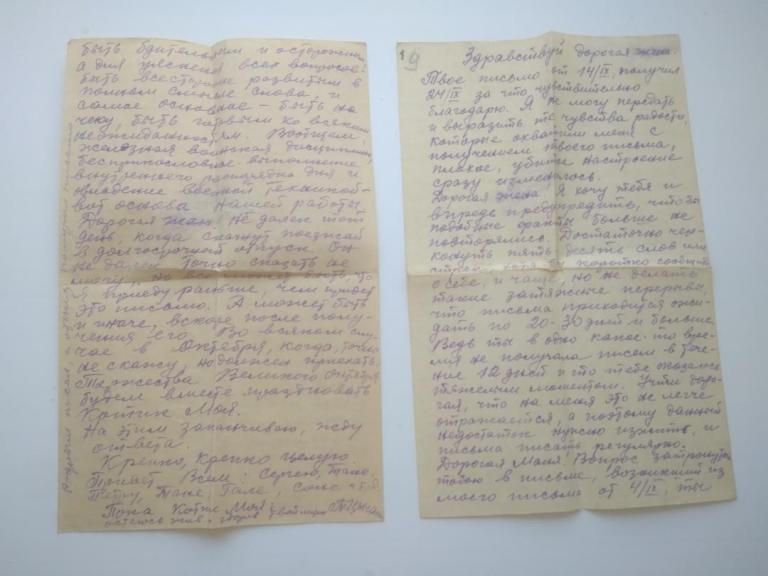 быть бдительным и осторожным
а для уяснения всех вопросов
быть всесторонне развитым в
полном смысле слова, и
самое основное – быть на
чеку, быть готовым ко всяким
неожиданностям.
железная воинская дисциплина
беспрекословное выполнение
внутреннего порядка дня и
владение военной техникой –
вот основа нашей работы.
Дорогая жена! Не далек тот
день, когда скажут поезжай
в долгосрочный отпуск. Он
не далек. Точно сказать не
могу, но все может быть, что
я приеду раньше, чем придет
это письмо. А может быть
и иначе, вскоре после полу-
чения его. Во всяком слу-
чае в Октября, когда, точно
не скажу, но должен приехать.
Торжества Великого октября
будем вместе праздновать
Котик Моя.
На этим заканчиваю, жду
ответа.
Крепко, крепко целую.
Привет Всем: Сергею, Тане,
Петру, Тане, Гале, Соне и т.д.
Пока Котик Моя
остаюсь жив и здоров твой
19
Здравствуй дорогая жена.
Твое письмо от 14/IX получил
24/IX за что чувствительно
благодарю. Я не могу передать
и выразить те чувства радости,
которые охватили меня с
получением твоего письма,
плохое, убитое настроение
сразу изменилось.
Дорогая жена! Я хочу тебя и
впредь предупредить, чтобы
подобные факты больше не
повторялись. Достаточно чер-
кнуть пять – десять слов или
коротко сообщить
о себе, и чаще, но не делать
такие затяжные перерывы,
что письма приходится ожи-
дать по 20-30 дней и больше.
Ведь ты в одно какое-то вре-
мя не получала писем в тече-
ние 12 дней и то тебе казалось
тяжелым моментом. Учти доро-
гая, что на меня это не легче
отражается, а поэтому данный
недостаток нужно изжить, и
письма писать регулярно.
Дорогая Маня! Вопрос затронутый
тобою в письме, возникший из
моего письма от 4/IX, ты